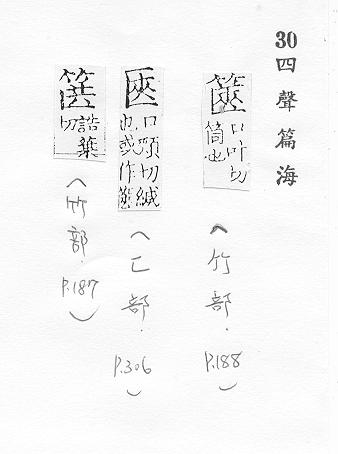 30四聲篇海
篋口叶切
筒也
(竹部.
P.188)
匧口頰切緘
也或作篋
(匚部.
P.306)
切
(竹部.
P.187)